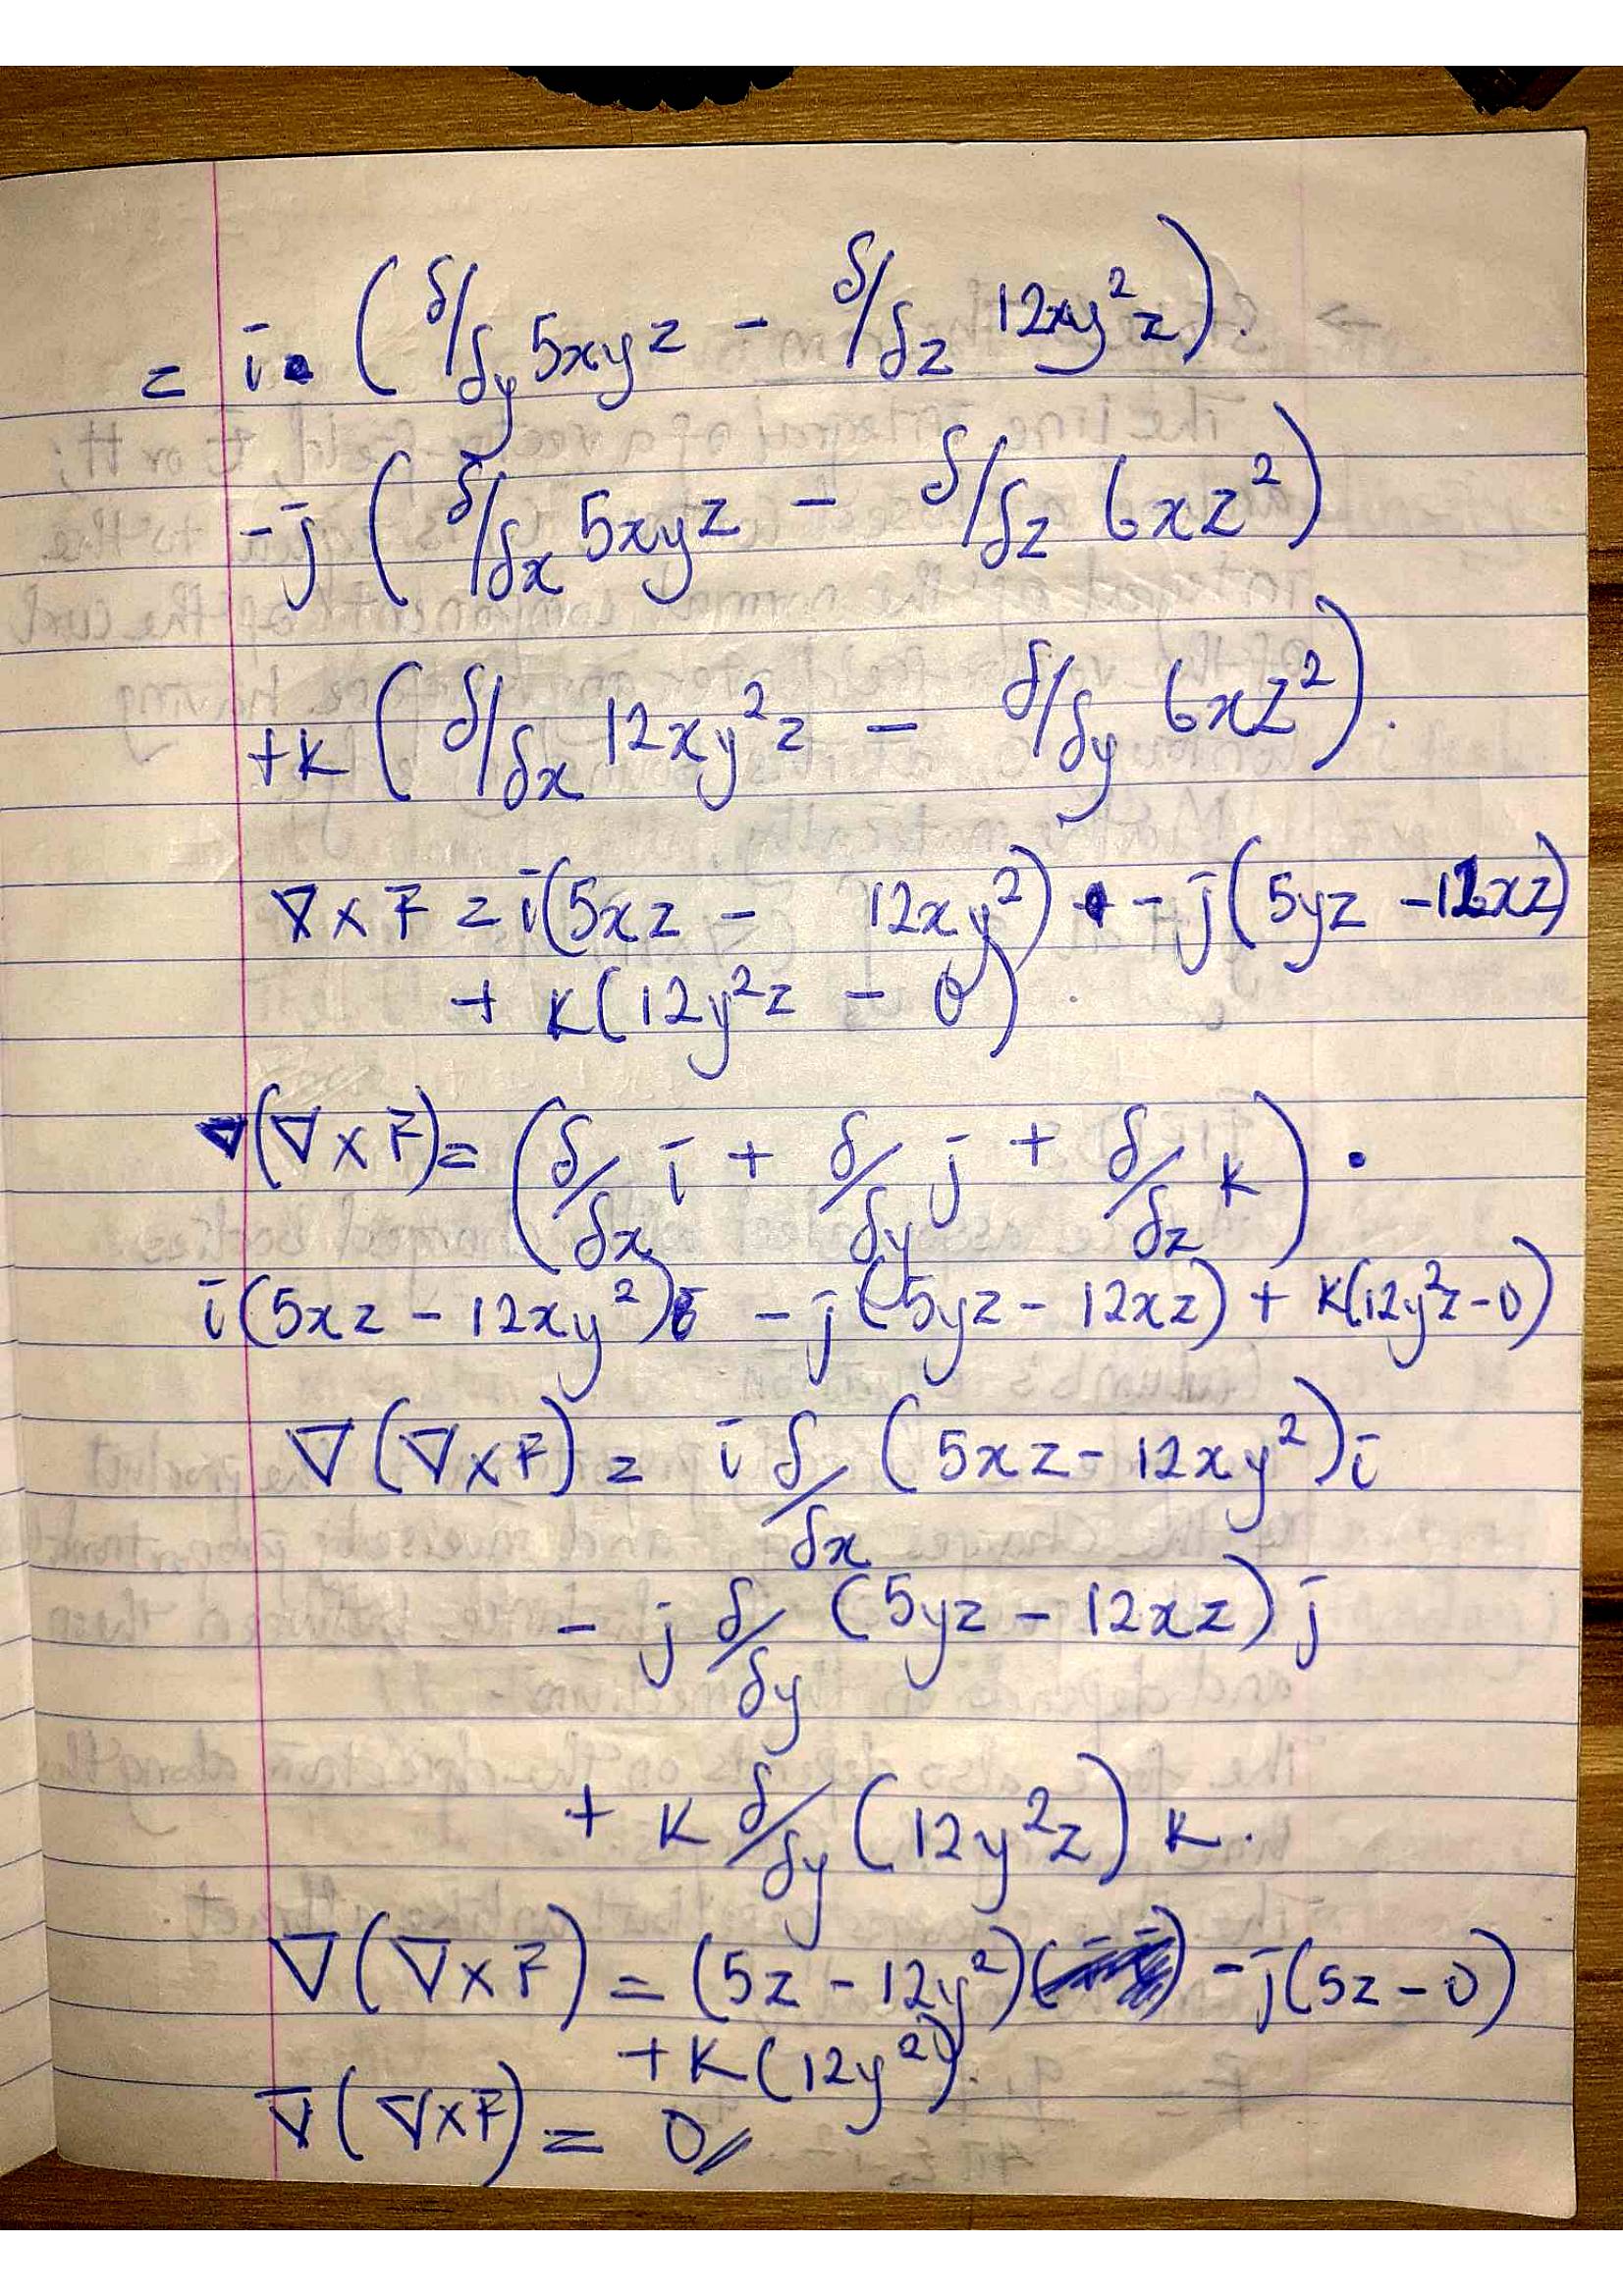 = i. ( δ/δy 5xyz - δ/δz 12xy²z ).
-j ( δ/δx 5xyz - δ/δz 6xz² )
+k ( δ/δx 12xy²z - δ/δy 6xz² ).
∇ x F = i(5xz - 12xy²) - j(5yz - 12xz)
+ k(12y²z - 0).
∇(∇ x F) = ( δ/δx i + δ/δy j + δ/δz k ) .
i(5xz - 12xy²) - j(5yz - 12xz) + k(12y²z - 0)
∇(∇xF) = i δ/δx (5xz - 12xy²)i
- j δ/δy (5yz - 12xz) j
+ k δ/δy (12y²z) k.
∇(∇xF) = (5z - 12y²) - j(5z - 0)
+ k(12y²).
∇(∇xF) = 0//